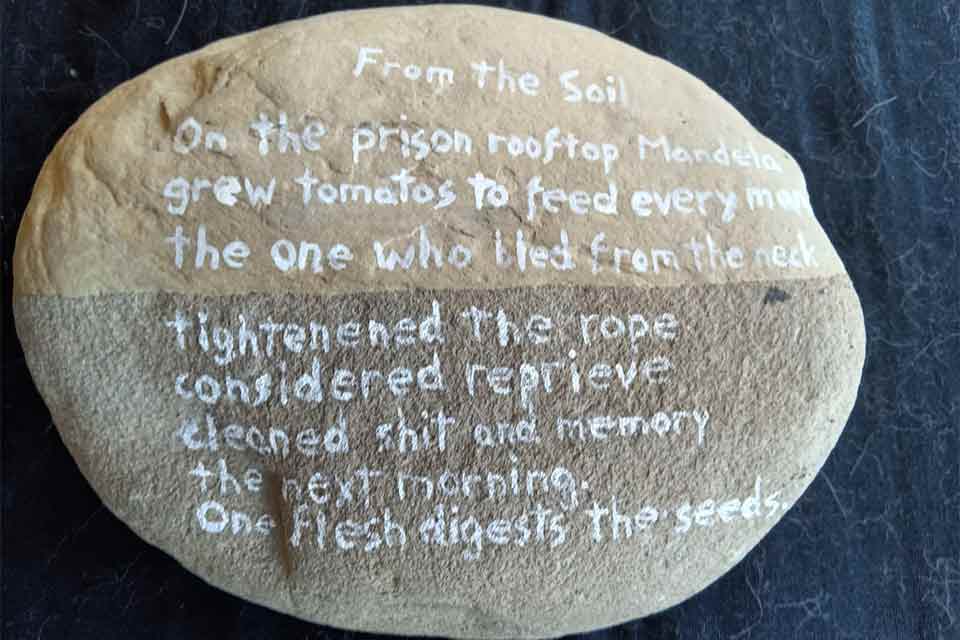 From the Soil
On the prison rooftop Mandela
grew tomatos to feed every man
the one who bled from the neck
tightenened the rope
considered reprieve
cleaned shit and memory
the next morning.
One flesh digests the seeds.